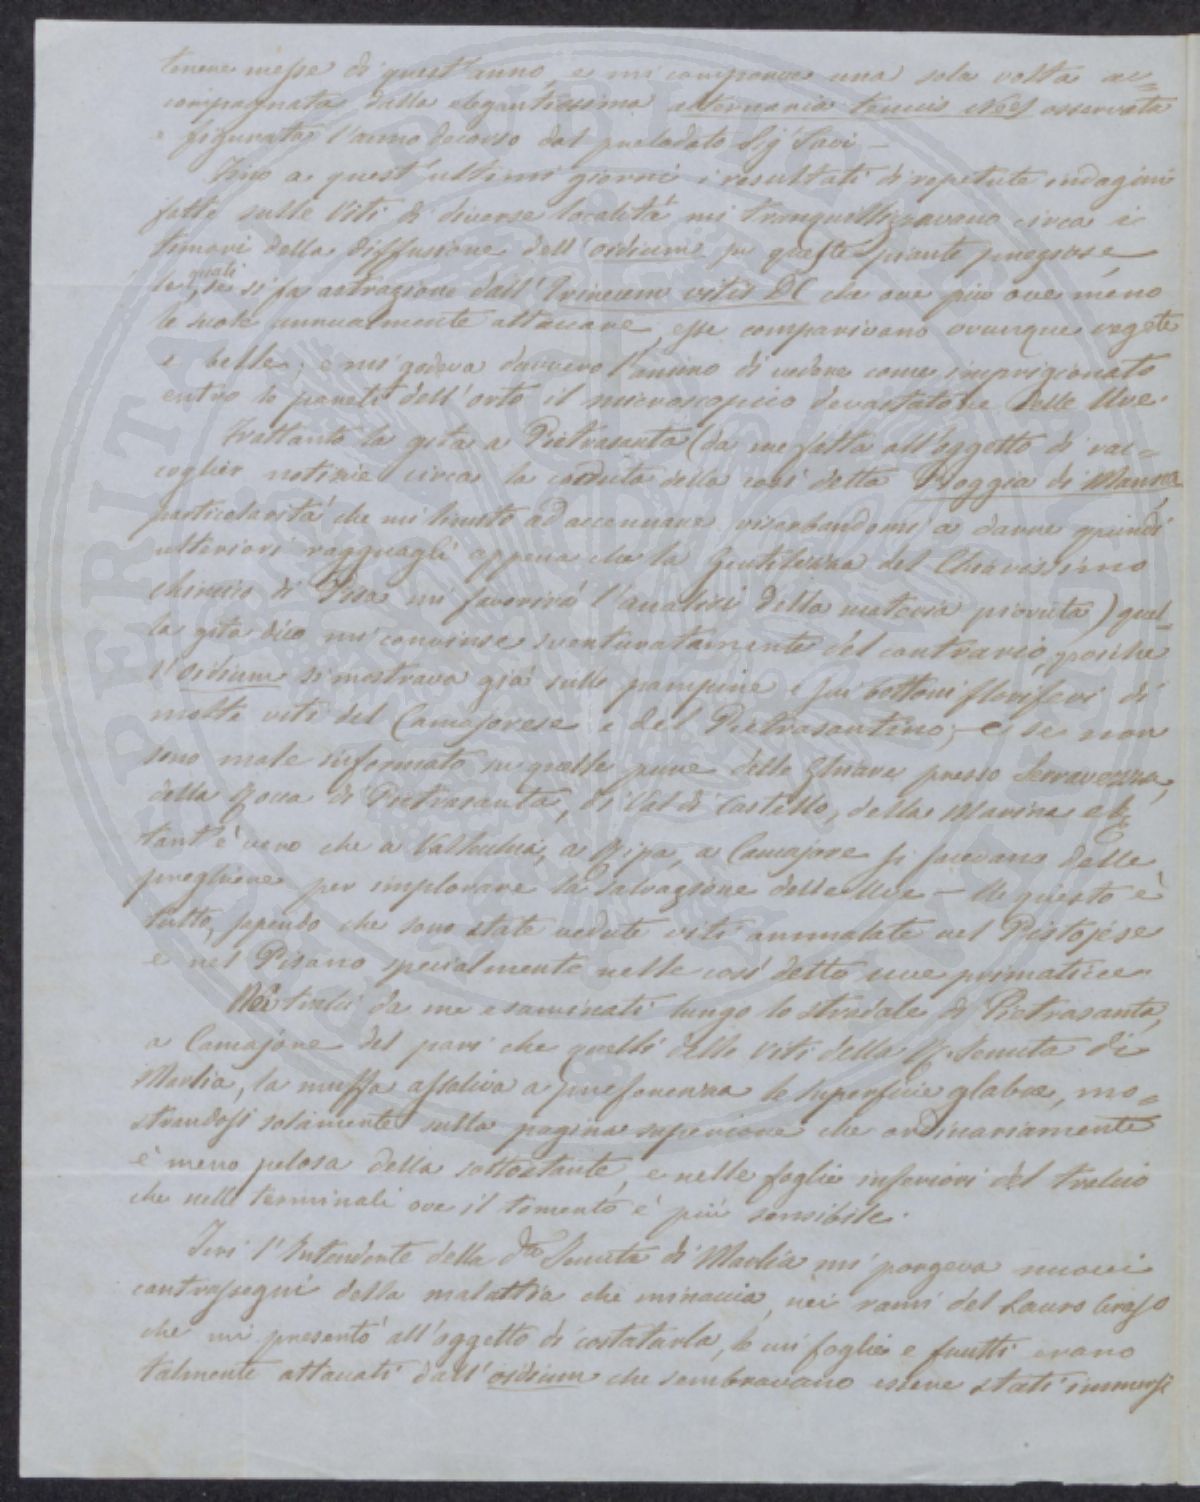 tenere messe di quest'anno, e mi comparve una sola volta ac=
compagnata dalla elegantissima alternaria tenuis Nees osservata
e figurata l'anno decorso dal prelodato Sig Savi —
Fino a quest'ultimi giorni i resultati di repetute indagini
fatte sulle Viti di diverse località mi tranquillizzavano circa i
timori della diffusione dell'oidium su queste piante preziose,
le quali, se si fa astrazione dall'Erineum vitis DC che ove più ove meno
le suole annualmente attaccare, esse comparivano ovunque vegete
e belle; e mi godeva davvero l'animo di vedere come imprigionato
entro le pareti dell'orto il microscopico devastatore delle Uve.
Frattanto la gita a Pietrasanta (da me fatta all'oggetto di rac=
coglier notizie circa la caduta della così detta Pioggia di Manna,
particolarità che mi limito ad accennare riserbandomi a darne quindi
ulteriori ragguagli appena che la gentilezza del Chiarissimo
chimico di Pisa mi favorirà l'analisi della materia piovuta) quel=
la gita dico mi convinse sventuratamente del contrario, posiche
l'oidium si mostrava già sulle pampine e sui bottoni floriferi di
molte viti del Camajorese e del Pietrasantino; e se non
sono male informato su quelle pure delle presso Serravezza,
della Rocca di Pietrasanta, di Val di Castello, della Marina
tant'è vero che a Vallecchia, a Ripa, a Camajore si facevano delle
preghiere per implorare la salvazione delle Uve — Ne questo è
tutto, sapendo che sono state vedute viti ammalate nel Pistojese
e nel Pisano specialmente nelle così dette uve primaticce.
Nei tralci da me esaminati lungo lo stradale di Pietrasanta,
a Camajore del pari che quelli delle Viti della R. Tenuta di
Marlia, la muffa assaliva a preferenza le superficie glabre, mo=
strandosi solamente sulla pagina superiore che ordinariamente
è meno pelosa della sottostante, e nelle foglie inferiori del tralcio
che nelle terminali ove il tomento è più sensibile.
Jeri l'Intendente della dta Tenuta di Marlia mi porgeva nuovi
contrassegni della malattia che minaccia, nei rami del Lauro Ceraso
che mi presentò all'oggetto di costatarla, le cui foglie e frutti erano
talmente attaccati dall'oidium che sembravano essere stati immersi